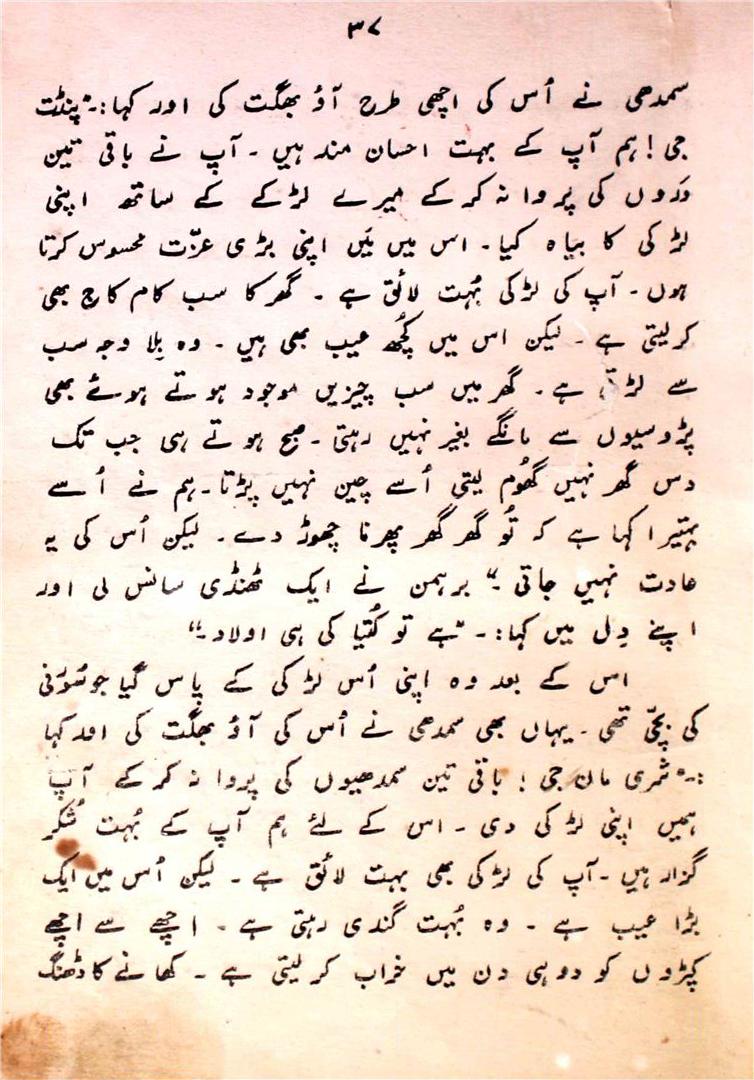 ۳۷
سمدھی نے اُس کی اچھی طرح آؤ بھگت کی اور کہا:۔ "پنڈت
جی! ہم آپ کے بہت احسان مند ہیں۔ آپ نے باقی تین
وَروں کی پروا نہ کرکے میرے لڑکے کے ساتھ اپنی
لڑکی کا بیاہ کیا۔ اس میں مَیں اپنی بڑی عزّت محسوس کرتا
ہوں۔ آپ کی لڑکی بُہت لائق ہے۔ گھر کا سب کام کاج بھی
کرلیتی ہے۔ لیکن اس میں کُچھ عیب بھی ہیں۔ وہ بِلا وجہ سب
سے لڑتی ہے۔ گھر میں سب چیزیں موجود ہوتے ہوئے بھی
پڑوسیوں سے مانگے بغیر نہیں رہتی۔ صبح ہوتے ہی جب تک
دس گھر نہیں گھُوم لیتی اُسے چین نہیں پڑتا۔ ہم نے اُسے
بہتیرا کہا ہے کہ تُو گھر گھر پھرنا چھوڑ دے۔ لیکن اُس کی یہ
عادت نہیں جاتی۔" برہمن نے ایک ٹھنڈی سانس لی اور
اپنے دِل میں کہا:۔ "ہے تو کُتیا کی ہی اولاد۔"
اس کے بعد وہ اپنی اُس لڑکی کے پاس گیا جو سُورنی
کی بچّی تھی۔ یہاں بھی سمدھی نے اُس کی آؤ بھگت کی اور کہا
:۔ "شری مان جی! باقی تین سمدھیوں کی پروا نہ کرکے آپ
ہمیں اپنی لڑکی دی۔ اس کے لئے ہم آپ کے بُہت شُکر
گزار ہیں۔ آپ کی لڑکی بھی بہت لائق ہے۔ لیکن اُس میں ایک
بڑا عیب ہے۔ وہ بُہت گندی رہتی ہے۔ اچھے سے اچھے
کپڑوں کو دو ہی دن میں خراب کرلیتی ہے۔ کھانے کا ڈھنگ